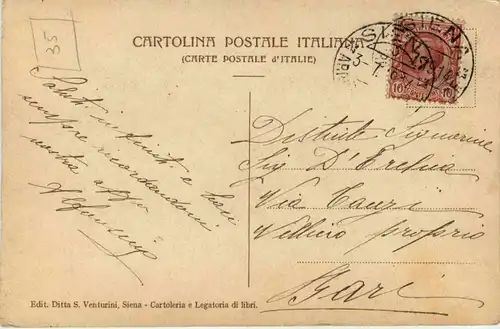 35
CARTOLINA POSTALE ITALIANA
(CARTE POSTALE d'ITALIE)
SIENA
10 10
Saluti infiniti e baci
sempre ricordandovi
vostra aff
Distinte Signorine
Sig. D'Erchia
Via Cavour
Villino proprio
Bari
Edit. Ditta S. Venturini, Siena - Cartoleria e Legatoria di libri.